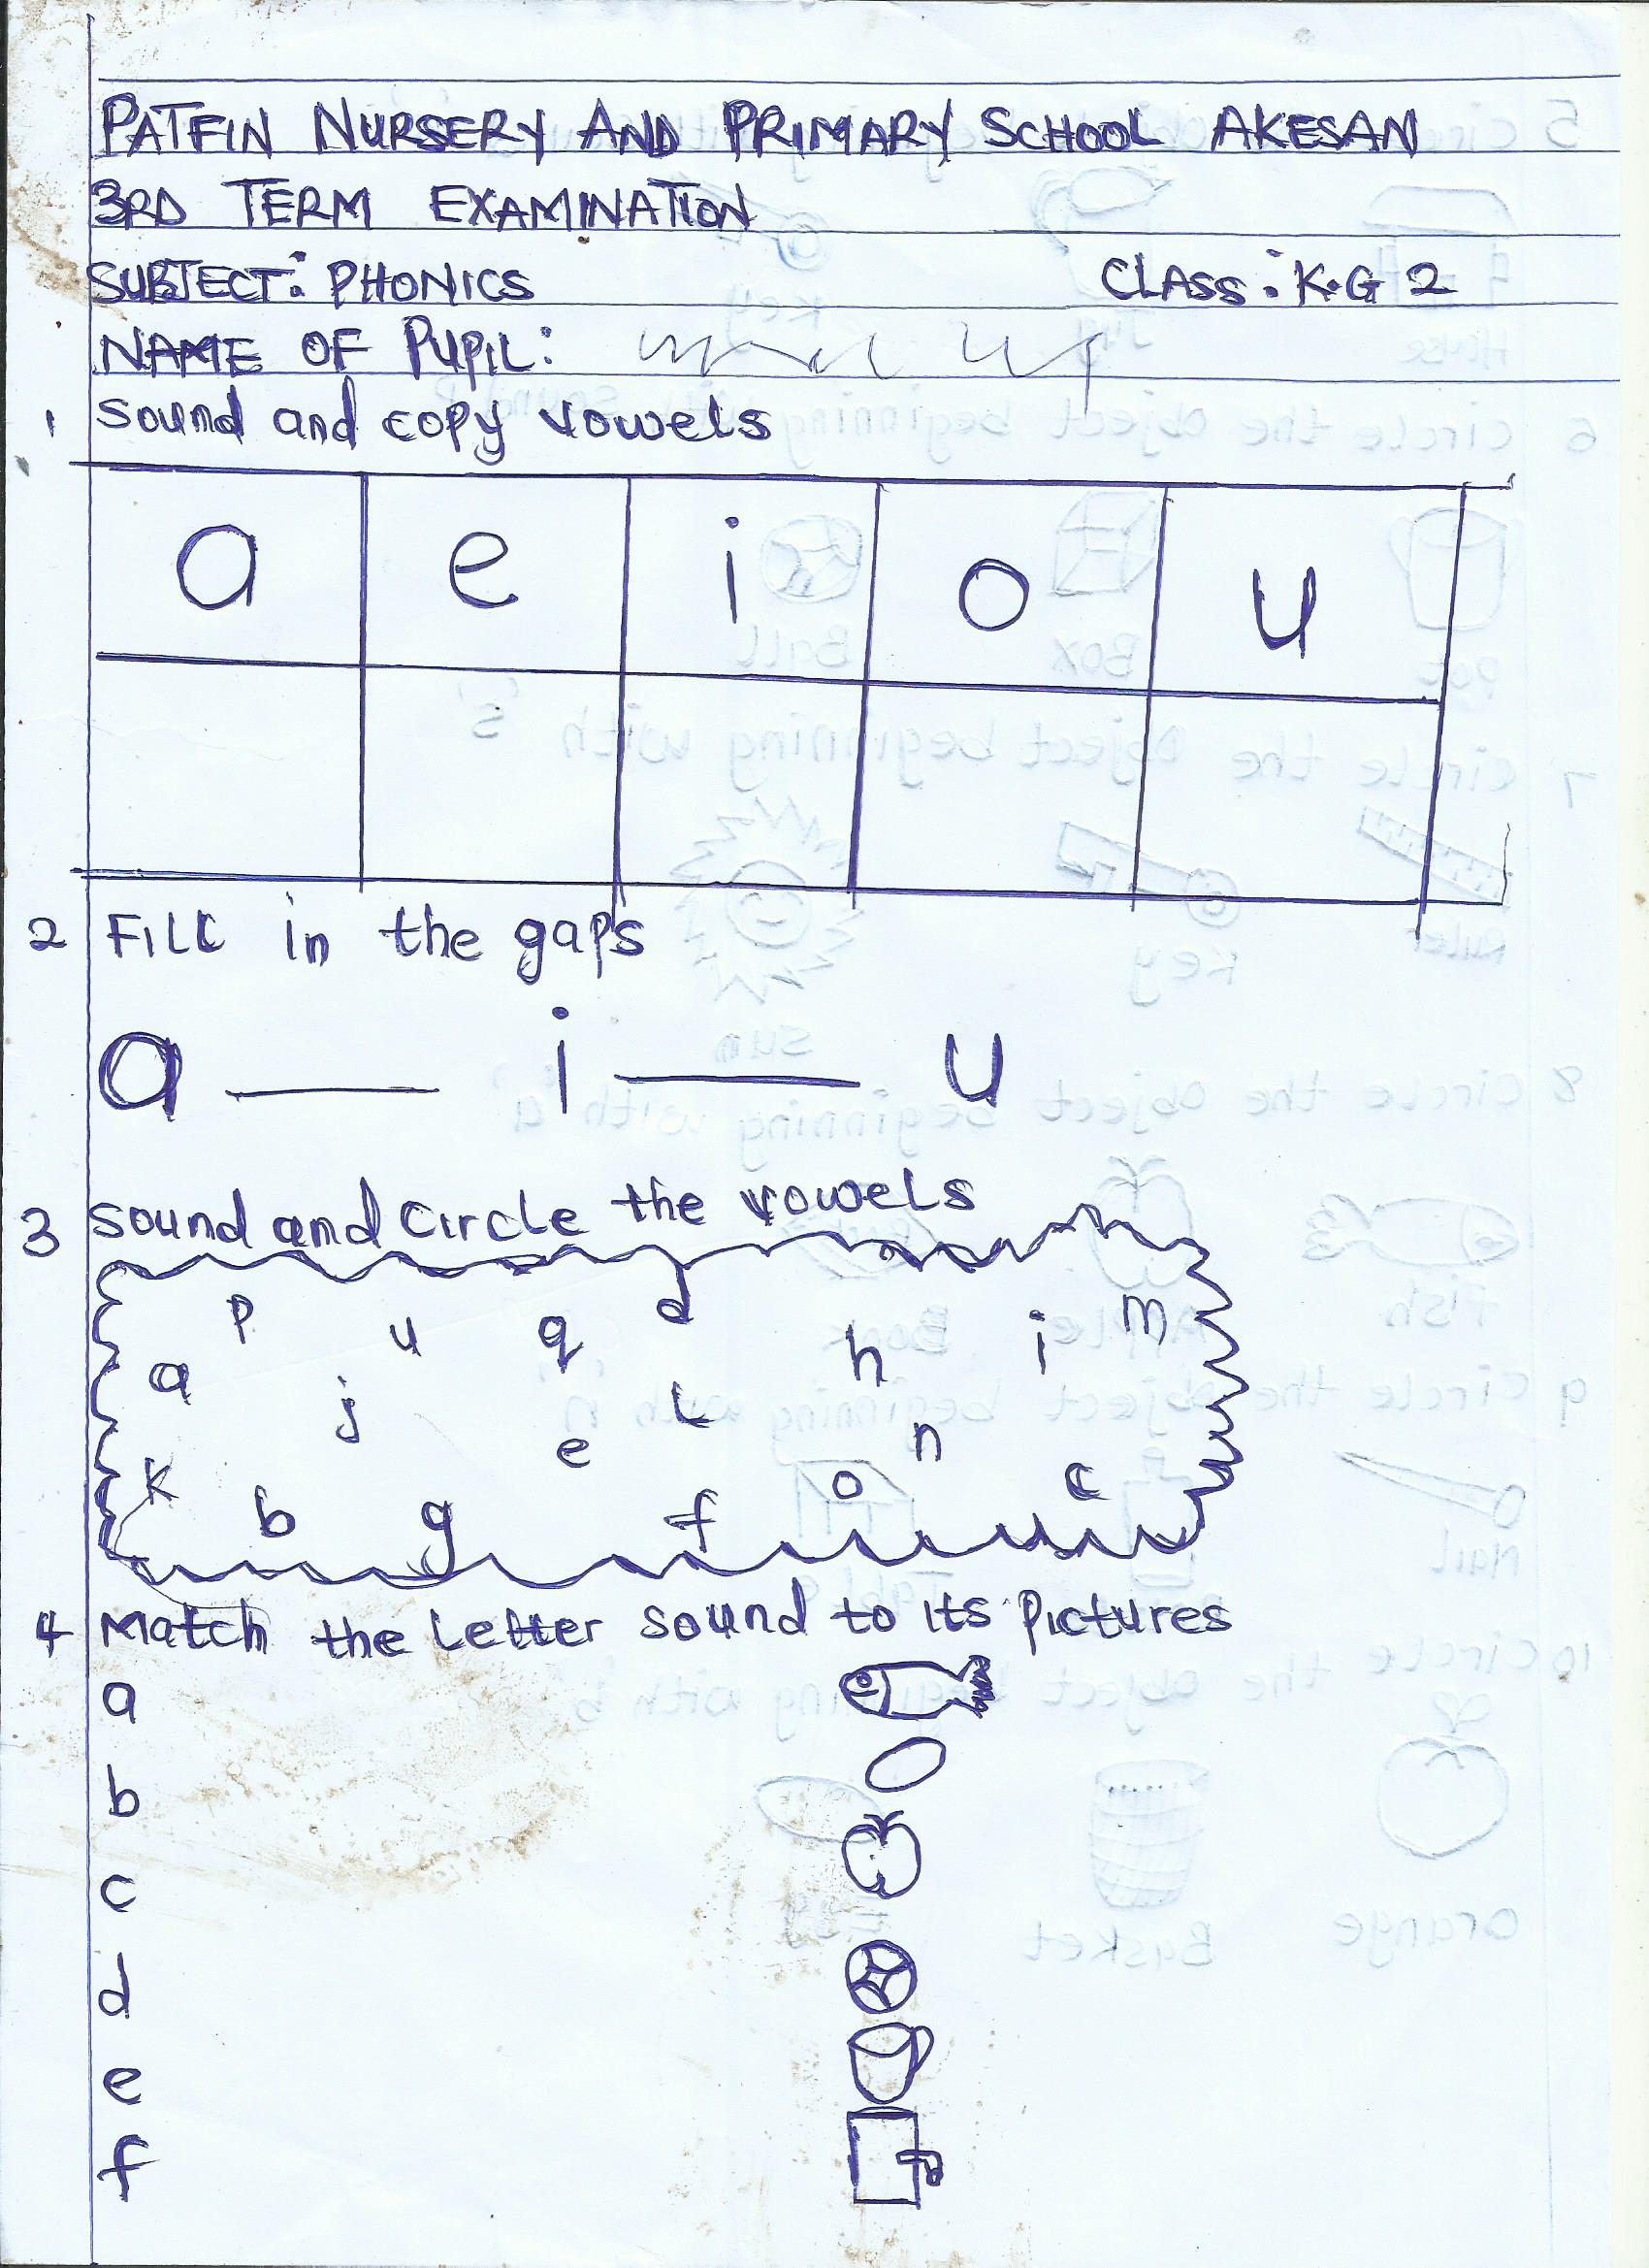 PATFIN NURSERY AND PRIMARY SCHOOL AKESAN
3RD TERM EXAMINATION
SUBJECT: PHONICS CLASS: K.G 2
NAME OF PUPIL:
1 Sound and copy vowels
a e i o u
2 Fill in the gaps
a ____ i ____ u
3 Sound and circle the vowels
p u q d h i m
a j e l n
k b g f o c
4 Match the letter sound to its pictures
a
b
c
d
e
f